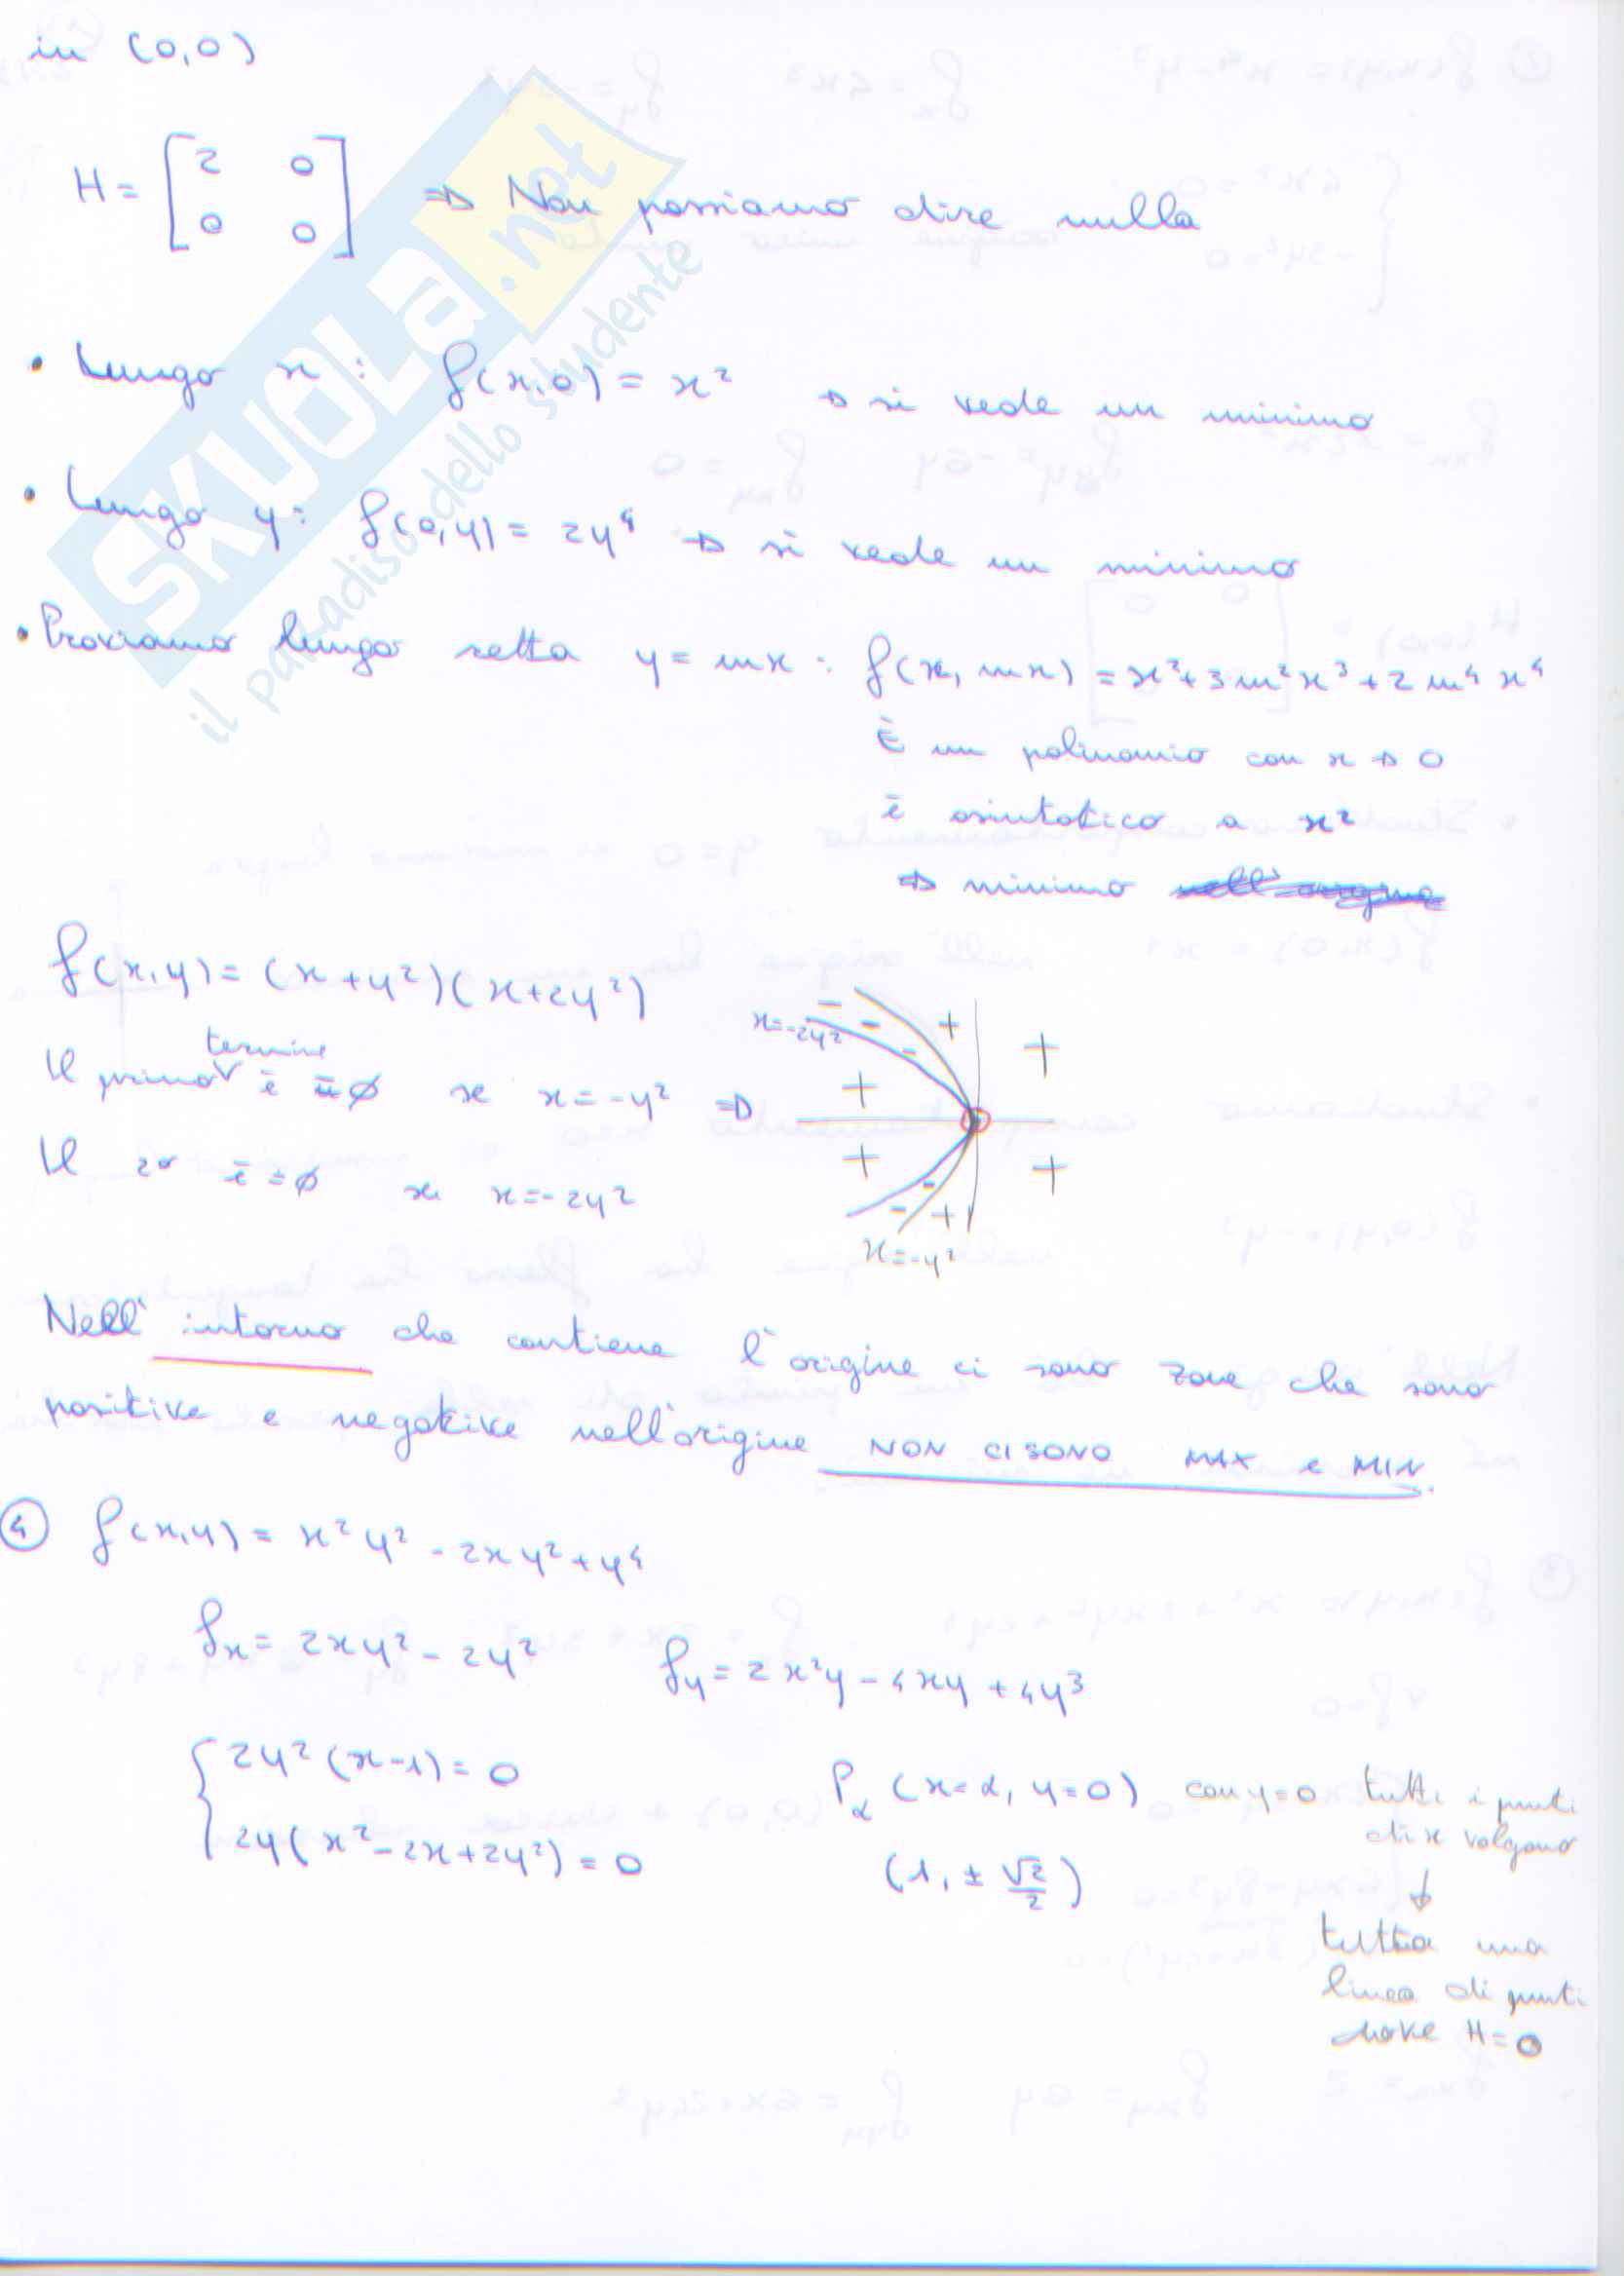 in (0,0)
H = [2 0
0 0] ⇒ Non possiamo dire nulla
SKUOLA.net
il paradiso dello studente
• Lungo x : f(x,0) = x² → si vede un minimo
• Lungo y : f(0,y) = 2y⁴ → si vede un minimo
• Proviamo lungo retta y = mx : f(x, mx) = x² + 3m²x³ + 2m⁴x⁴
È un polinomio con x → 0
è asintotico a x²
⇒ minimo nell'origine
f(x,y) = (x + y²)(x + 2y²)
Il primo termine è = ∅ se x = -y² ⇒
Il 2º è = ∅ se x = -2y²
x = -2y²
- - - +
+
+
+
+
- - +
x = -y²
Nell' intorno che contiene l'origine ci sono zone che sono
positive e negative nell'origine NON CI SONO MAX e MIN.
④ f(x,y) = x²y² - 2xy² + y⁴
fx = 2xy² - 2y² fy = 2x²y - 4xy + 4y³
{ 2y²(x-1) = 0
2y(x² - 2x + 2y²) = 0
Pα (x=α, y=0) con y=0 tutti i punti
di x valgono
(1, ± √2/2)
↓
tutta una
linea di punti
dove H = 0